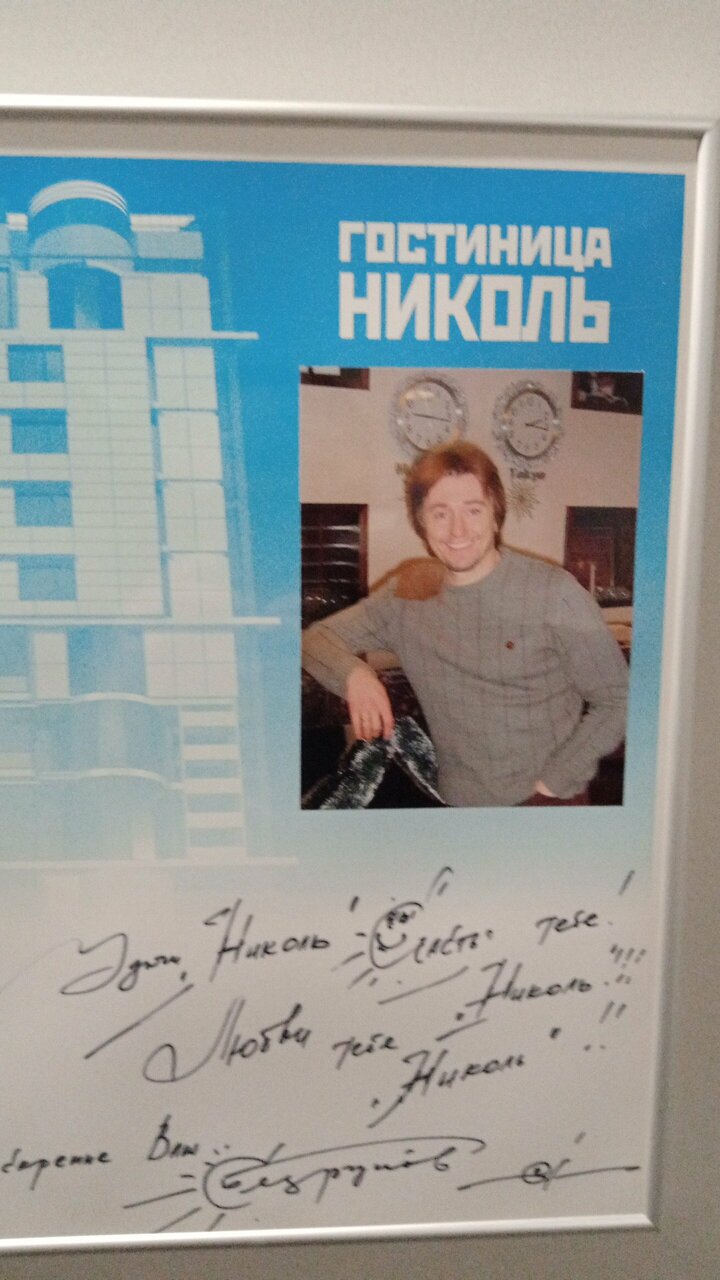 ГОСТИНИЦА
НИКОЛЬ
Tokyo
Удачи, "Николь"! Счастья тебе!
"Николь"!!!
Любви тебе
"Николь"!!
Ваш
Безруков